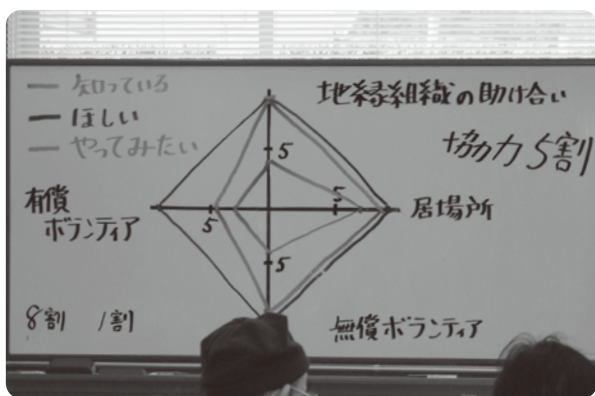 知っている
ほしい
やってみたい
地縁組織の助け合い
協力5割
5
5
5
5
有償
ボランティア
居場所
8割 1割
無償ボランティア